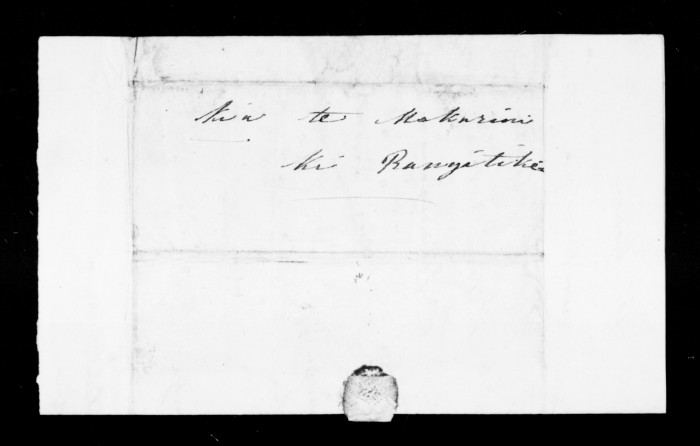 Kia te Makarini
Ki Rangitikei